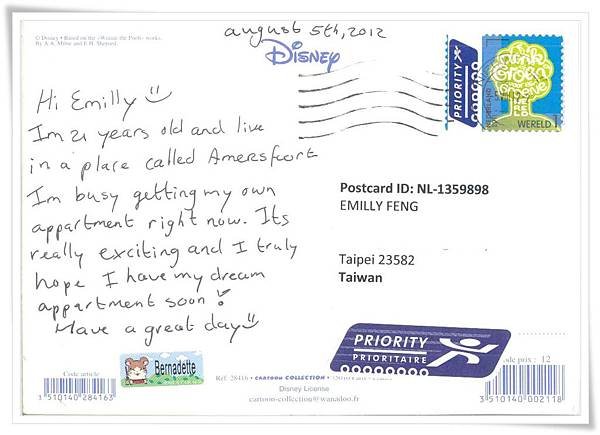 august 5th, 2012
© Disney • Based on the «Winnie the Pooh» works.
By A. A. Milne and E.H. Shepard.
DISNEY
PRIORITY
WERELD 1
Hi Emilly
Im 21 years old and live
in a place called Amersfoort
Im busy getting my own
appartment right now. Its
really exciting and I truly
hope I have my dream
appartment soon!
Have a great day
Postcard ID: NL-1359898
EMILLY FENG
Taipei 23582
Taiwan
PRIORITY
PRIORITAIRE
Bernadette
Code article
3 510140 284163
Réf. 28416 • CARTOON COLLECTION
Disney License
cartoon-collection@wanadoo.fr
ode prix : 12
3 510140 002118